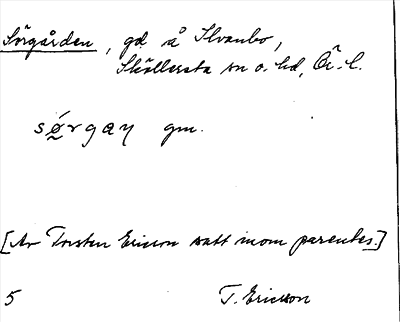 Sörgården, gd å Ilvanbo,
Sköllersta sn o. hd, Ör. l.
sørgaɳ gm.
[Av Torsten Ericson satt inom parentes.]
5 T. Ericsson